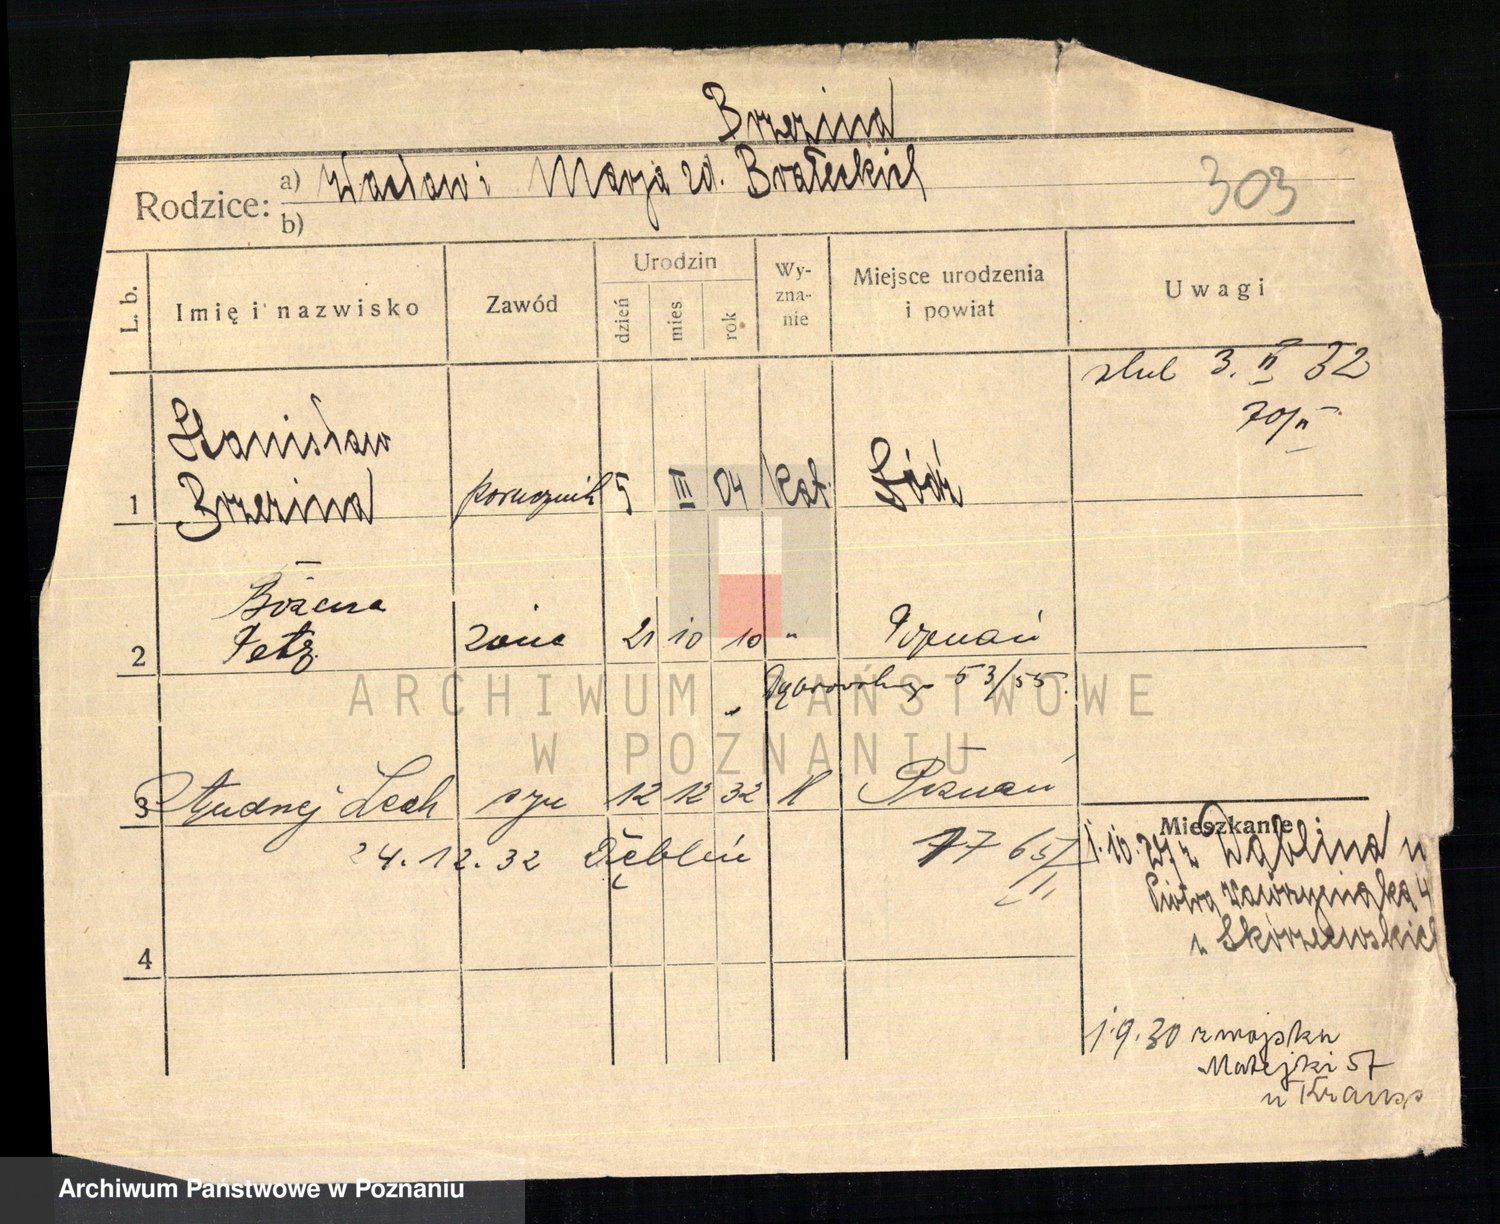 Brzezina
Rodzice: a) Wacław i Marja zd. Brałeckich
b)
303
L. b. Imię i nazwisko Zawód Urodzin dzień mies rok Wy-zna-nie Miejsce urodzenia i powiat Uwagi
ślub 3. II 32
70/II
Stanisław
1 Brzezina porucznik 5 III 04 kat. Łódź
Bożena
2 Petz. żona 21 10 10 " Poznań
Dąbrowskiego 53/55.
3 Andrzej Lech syn 12 12 32 K Poznań
Mieszkanie
24.12.32 Dęblin
77 65/II
1.10.27 z Dąblina u
Piotra Wawrzyniaka 4
u Skórzewskich
4
1.9.30 z wojska
Matejki 57
u Krauss
ARCHIWUM PAŃSTWOWE
W POZNANIU
Archiwum Państwowe w Poznaniu